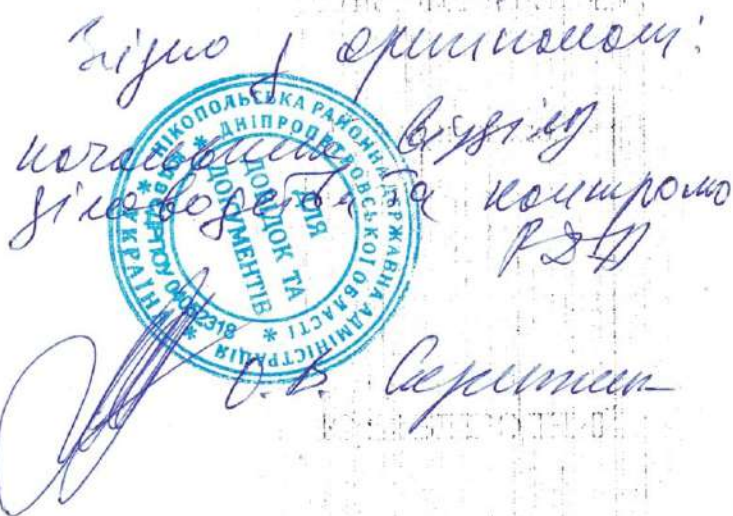 Згідно з оригіналом:
начальник відділу
діловодства та контролю
РДА
О.В.
УКРАЇНА * НІКОПОЛЬСЬКА РАЙОННА ДЕРЖАВНА АДМІНІСТРАЦІЯ *
ДНІПРОПЕТРОВСЬКОЇ ОБЛАСТІ *
ДЛЯ
ДОВІДОК ТА
ДОКУМЕНТІВ